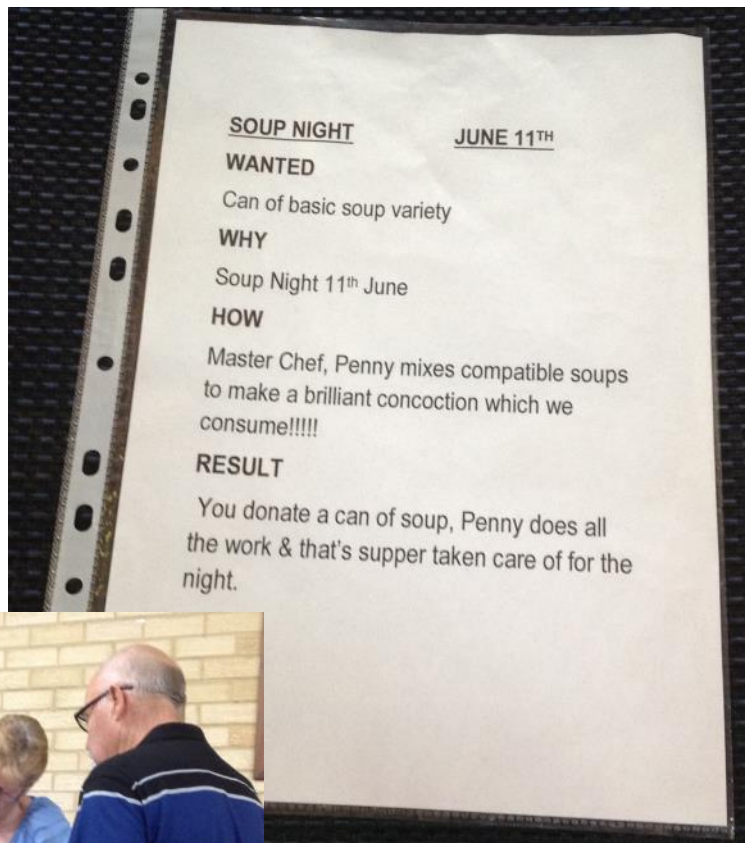 SOUP NIGHT JUNE 11TH
WANTED
Can of basic soup variety
WHY
Soup Night 11th June
HOW
Master Chef, Penny mixes compatible soups
to make a brilliant concoction which we
consume!!!!!
RESULT
You donate a can of soup, Penny does all
the work & that's supper taken care of for the
night.